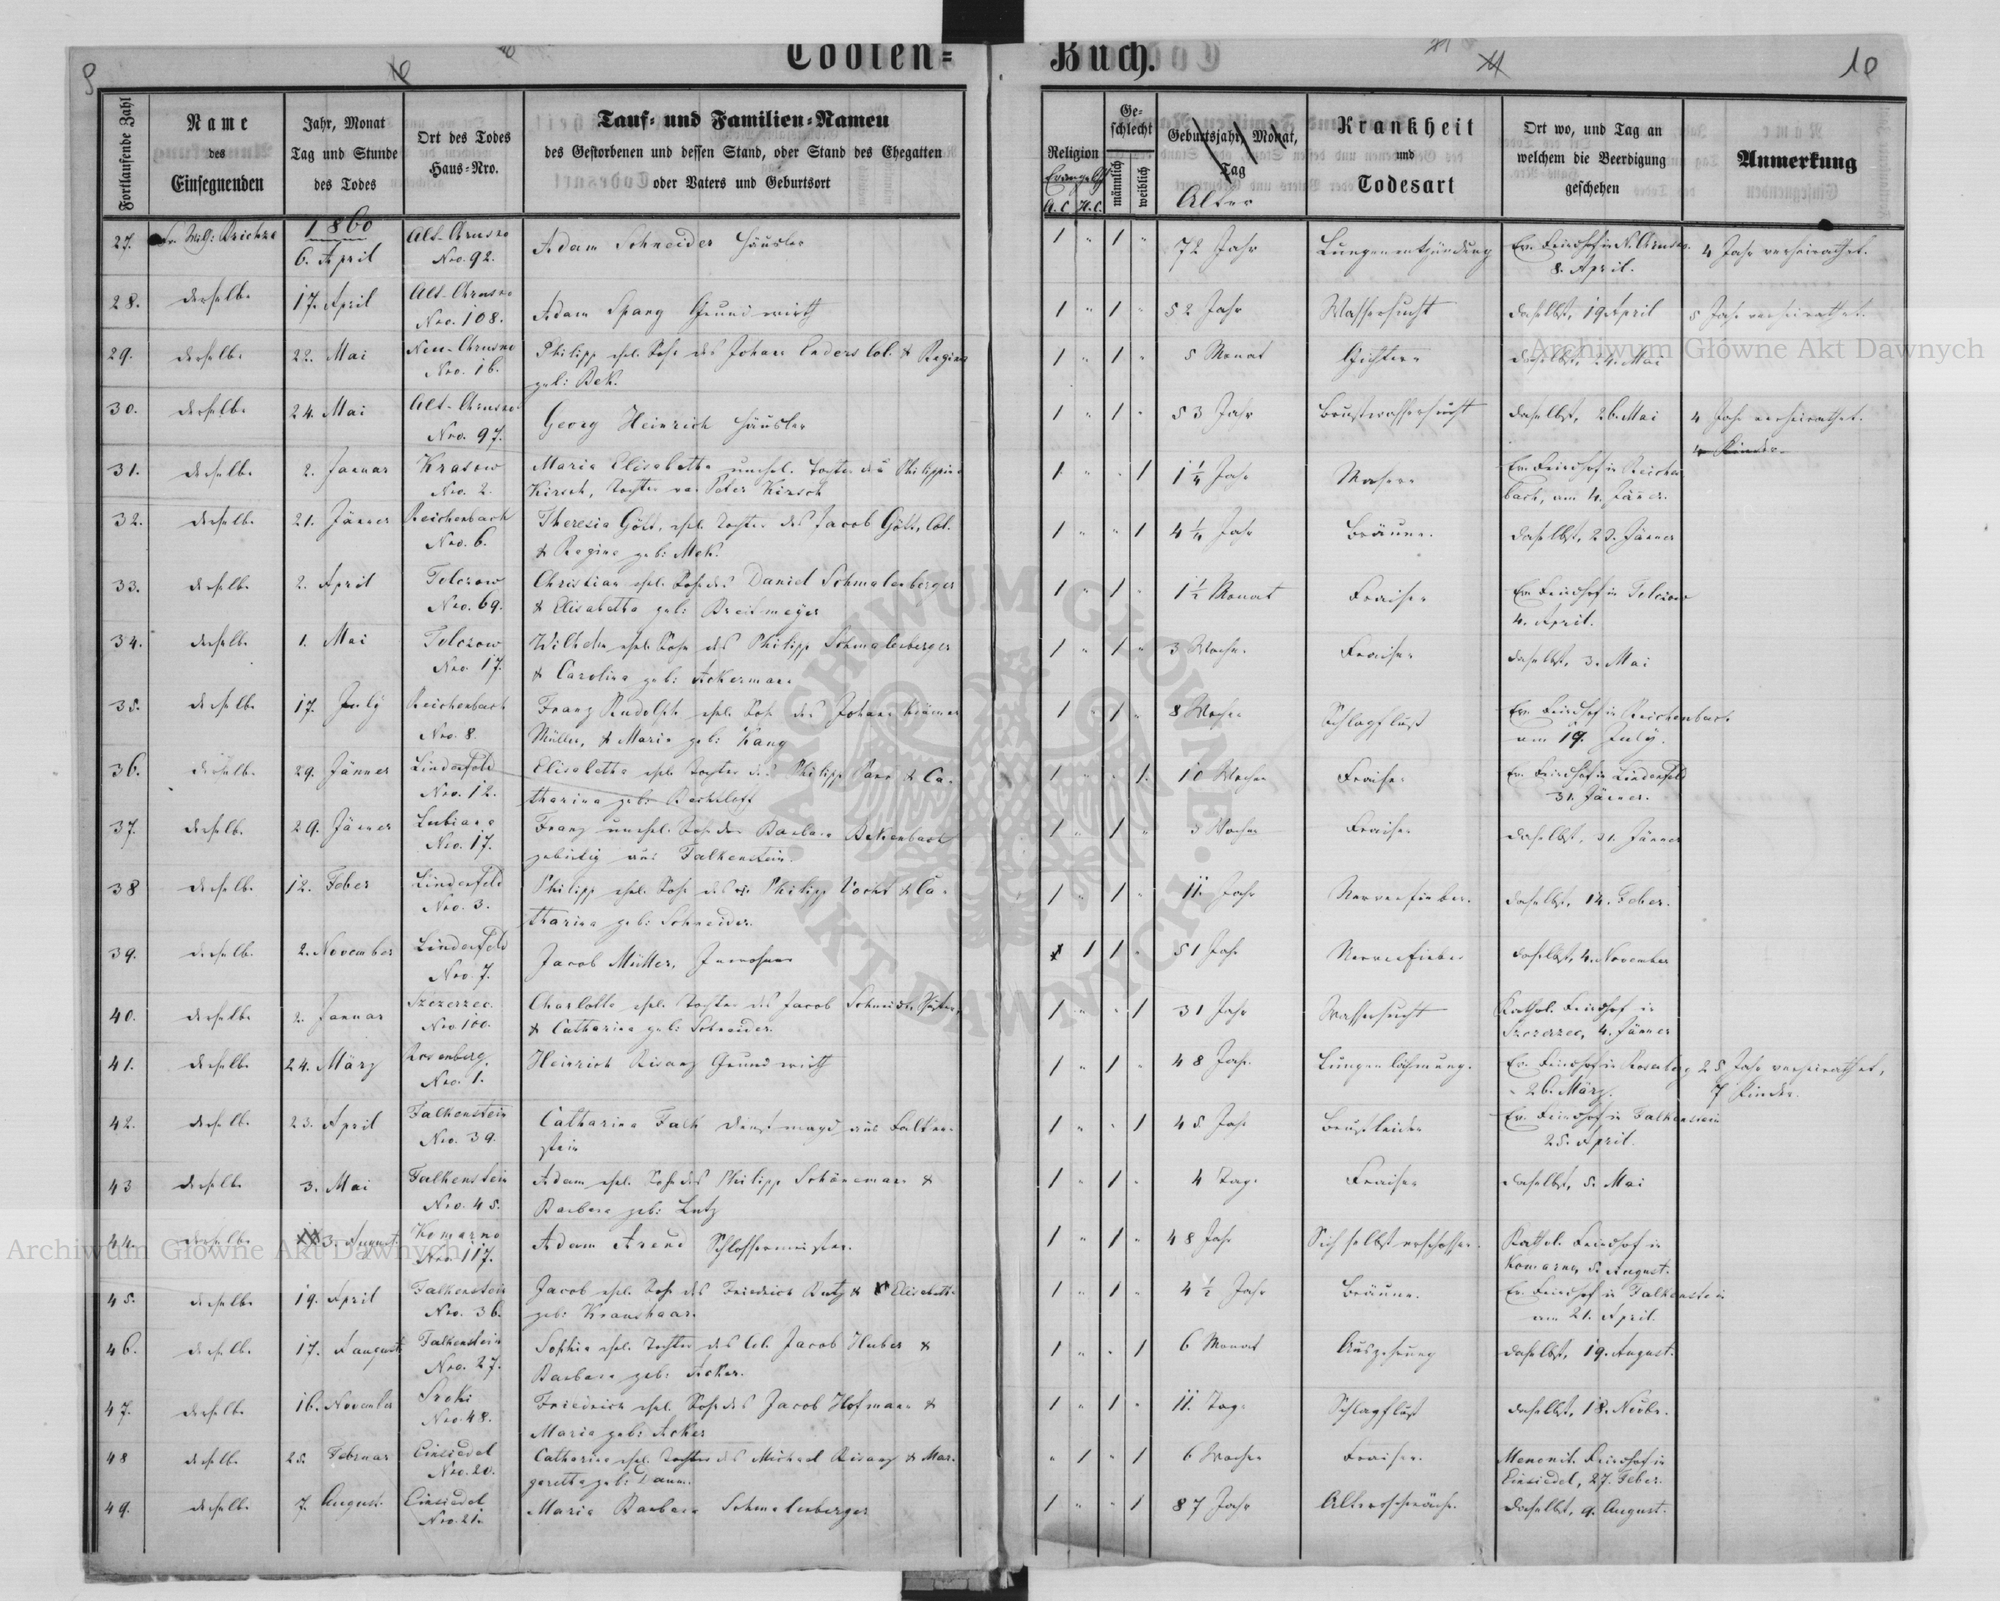 Todten-Buch.
9
10
Fortlaufende Zahl
Name des Einsegnenden
Jahr, Monat Tag und Stunde des Todes
Ort des Todes Haus-Nro.
Tauf- und Familien-Namen
des Gestorbenen und dessen Stand, oder Stand des Ehegatten
oder Vaters und Geburtsort
Religion
Evangelisch
A.C. H.C.
Geschlecht
männlich
weiblich
Geburtsjahr, Monat, Tag
Alter
Krankheit und Todesart
Ort wo, und Tag an welchem die Beerdigung geschehen
Anmerkung
1860
27. 6. April Nro. 92. Adam Schneider Häusler 1 " 1 " 72 Jahr Lungenentzündung 8. April. 4 Jahr verheirathet.
28. derselbe 17. April Nro. 108. Adam Spang Grundwirth 1 " 1 " 52 Jahr Wassersucht daselbst, 19 April 5 Jahr verheirathet.
29. derselbe 22. Mai Nro. 16. Philipp ehel. Sohn des Johann Enders Col. & Regina
geb: Bek. 1 " 1 " 5 Monat daselbst, 24. Mai
30. derselbe 24. Mai Nro. 97. Georg Heinrich Häusler 1 " 1 " 53 Jahr Brustwassersucht daselbst, 26. Mai 4 Jahr verheirathet.
4 Kinder
31. derselbe 2. Januar Krasow Nro. 2. Maria Elisabetha unehel. Tochter der Philippina
Kirsch, Tochter von Peter Kirsch 1 " " 1 1 1/4 Jahr Masern Ev. Friedhof in Reichenbach, am 4. Jänner.
32. derselbe 21. Jänner Reichenbach Nro. 6. Theresia Gött, ehel. Tochter des Jacob Gött, Col.
& Regina geb: Mek. 1 " " 1 4 1/4 Jahr Bräune. daselbst, 23. Jänner
33. derselbe 2. April Tolczow Nro. 69. Christian ehel. Sohn des Daniel Schmalenberger
& Elisabetha geb: Breitmeyer 1 " 1 " 1 1/2 Monat Fraisen Ev. Friedhof in Tolczow
4. April.
34. derselbe 1. Mai Tolczow Nro 17. Wilhelm ehel. Sohn des Philipp Schmalenberger
& Carolina geb: Ackermann 1 " 1 " 3 Wochen Fraisen daselbst, 3. Mai
35. derselbe 17. July Reichenbach Nro. 8. Franz Rudolph ehel. Sohn des Johann
Müller, & Maria geb: Kang 1 " 1 " 8 Wochen Schlagfluß Ev. Friedhof in Reichenbach
am 19. July.
36. derselbe 29. Jänner Lindenfeld Nro. 12. Elisabetha ehel. Tochter des Philipp & Catharina geb: 1 " " 1 10 Wochen Fraisen Ev. Friedhof in Lindenfeld
31. Jänner.
37. derselbe 29. Jänner Lubiana Nro. 17. Franz unehel. Sohn der Barbara Bekenbach
gebürtig aus Falkenstein. 1 " 1 " 3 Wochen Fraisen daselbst, 31. Jänner
38 derselbe 12. Feber Lindenfeld Nro. 3. Philipp ehel. Sohn des Philipp & Catharina geb: Schneider. 1 " 1 " 11. Jahr Nervenfieber. daselbst, 14. Feber.
39. derselbe 2. November Lindenfeld Nro. 7. Jacob Müller, Inwohner 1 1 " 51 Jahr Nervenfieber daselbst, 4. November
40. derselbe 2. Januar Szczerzec. Nro 100. Charlotte ehel. Tochter des Jacob
& Catharina geb: Schneider. 1 " " 1 31 Jahr Wassersucht Kathol. Friedhof in
Szczerzec, 4. Jänner
41. derselbe 24. März Rosenberg. Nro. 1. Heinrich Rivang Grundwirth 1 " 1 " 48 Jahr Lungenlähmung. Ev. Friedhof in Rosenberg
26. März. 25 Jahr verheirathet,
7 Kinder.
42. derselbe 23. April Falkenstein Nro. 39. Catharina Falk Dienstmagd aus Falkenstein 1 " " 1 45 Jahr Brustleiden Ev. Friedhof in Falkenstein
25. April.
43 derselbe 3. Mai Falkenstein Nro. 45. Adam ehel. Sohn des Philipp Schönemann &
Barbara geb: Lutz 1 " 1 " 4 Tage Fraisen daselbst, 5. Mai
44. derselbe 3. August. Komarno Nro. 117. Adam Arend Schlossermeister. 1 " 1 " 48 Jahr Sich selbst erschossen. Kathol. Friedhof in
Komarno, 5. August.
45. derselbe 19. April Falkenstein Nro. 36. Jacob ehel. Sohn des Friedrich Rutz & Elisabeth
geb: Kraushaar. 1 " 1 " 4 1/2 Jahr Bräune. Ev. Friedhof in Falkenstein
am 21. April.
46. derselbe 17. August. Falkenstein Nro. 27. Sophia ehel. Tochter des Col. Jacob Huber &
Barbara geb: Acker. 1 " " 1 6 Monat Auszehrung daselbst, 19. August.
47. derselbe 16. November Nro. 48. Friedrich ehel. Sohn des Jacob Hofmann &
Maria geb: Acker 1 " 1 " 11. Tage Schlagfluß daselbst, 18. Novbr.
48 derselbe 25. Februar Einsiedel Nro. 20. Catharina ehel. Tochter des Michael Rivang & Margaretha geb: Daum. " 1 " 1 6 Wochen Fraisen. Menonit. Friedhof in
Einsiedel, 27. Feber.
49. derselbe 7. August. Einsiedel Nro. 21. Maria Barbara Schmalenberger 1 " " 1 87 Jahr Altersschwäche. daselbst, 9. August.
Archiwum Główne Akt Dawnych
Archiwum Główne Akt Dawnych
ARCHIWUM GŁÓWNE
AKT DAWNYCH